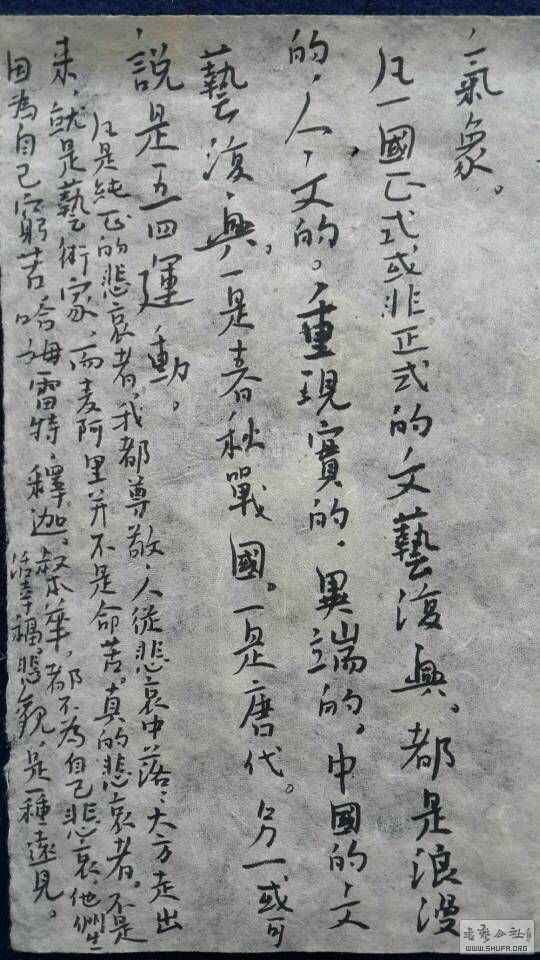 氣象。
凡一國正式或非正式的文藝復興。都是浪漫
的，人文的。重現實的，異端的。中國的文
藝復興。一是春秋戰國。一是唐代。另一或可
說是五四運動。
凡是純正的悲哀者，我都尊敬，人從悲哀中落落大方走出
来，就是藝術家，而麦阿里并不是命苦。真的悲哀者。不是
因為自己窮苦哈姆雷特，釋迦，叔本華，都不為自己悲哀，他們生
活幸福。悲觀，是一種遠見。
書藝公社
WWW.SHUFA.ORG